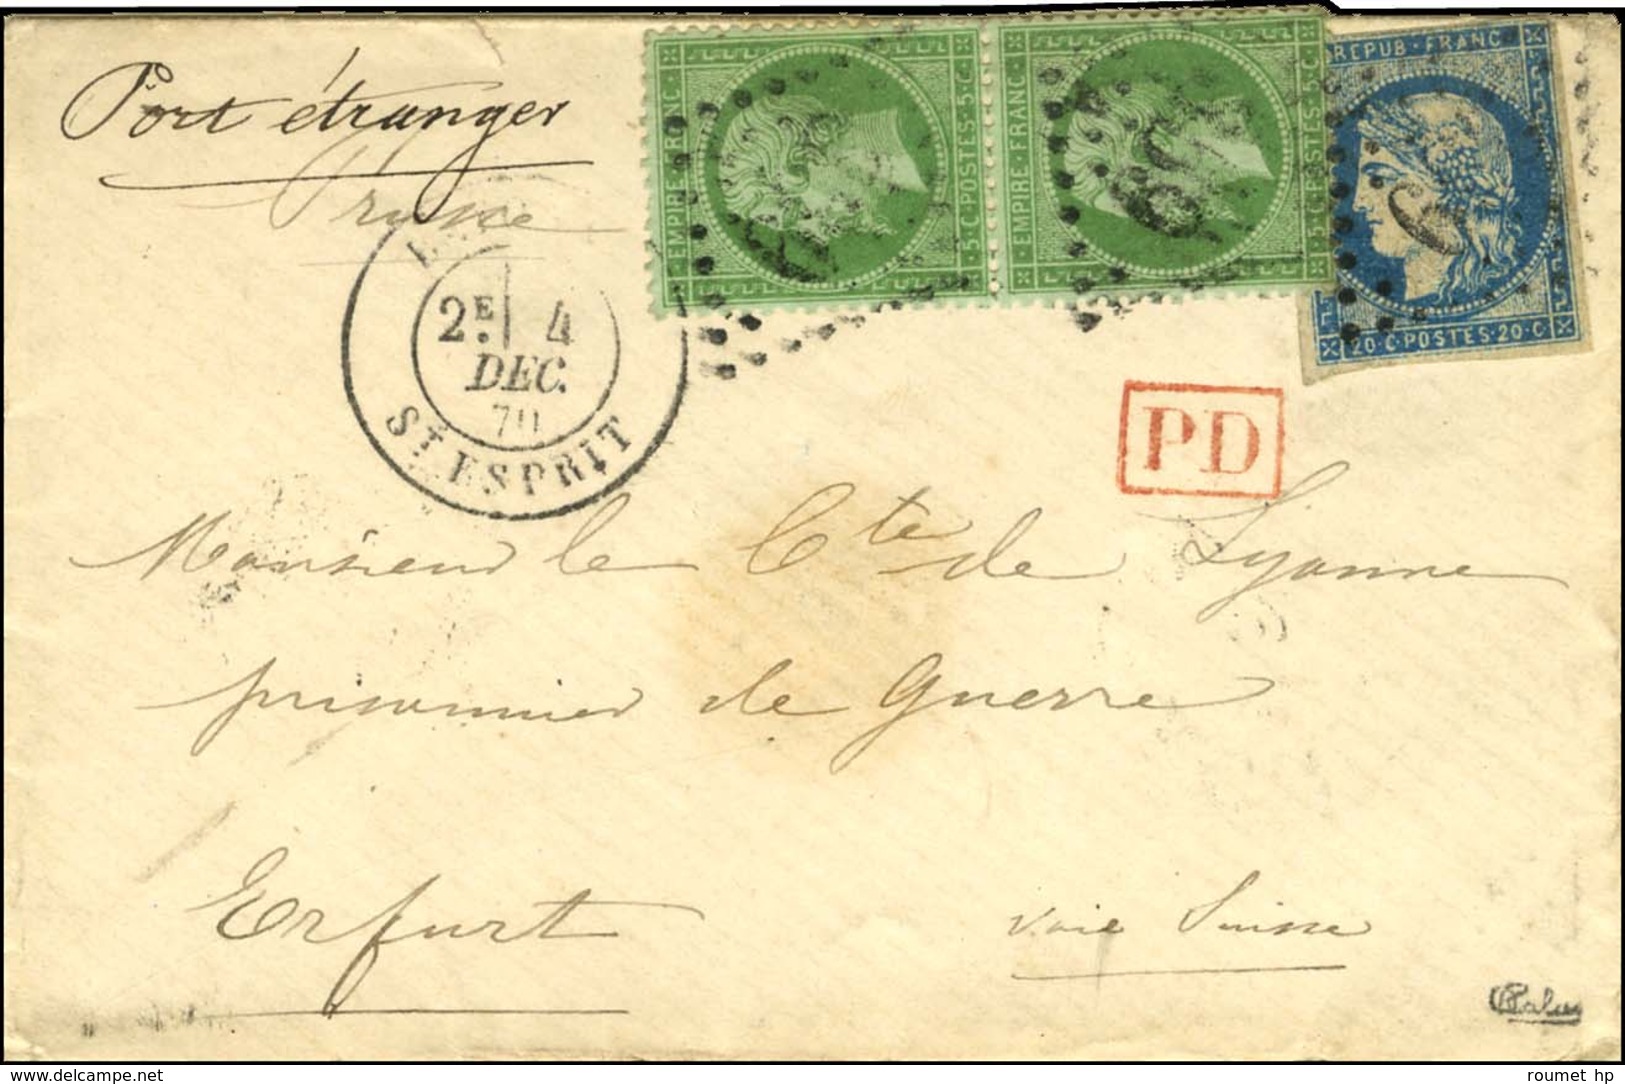 Port étranger
Prusse
EMPIRE FRANC
5 C. POSTES 5 C.
EMPIRE FRANC
5 C. POSTES 5 C.
REPUB FRANC
20 C POSTES 20 C
2E. 4
DEC.
70
ST ESPRIT
PD
Monsieur le Cte de Lyonne
prisonnier de Guerre
Erfurt
voie Suisse
Calves
roumet hp